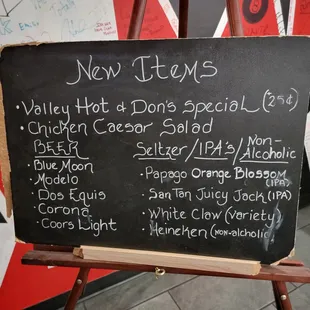 New Items
• Valley Hot & Don's special (25¢)
• Chicken Caesar Salad
BEER
• Blue Moon
• Modelo
• Dos Equis
• Corona
• Coors Light
Seltzer/IPA's/Non-Alcoholic
• Papago Orange Blossom (IPA)
• SanTan Juicy Jack (IPA)
• White Claw (variety)
• Heineken (non-alcholic)